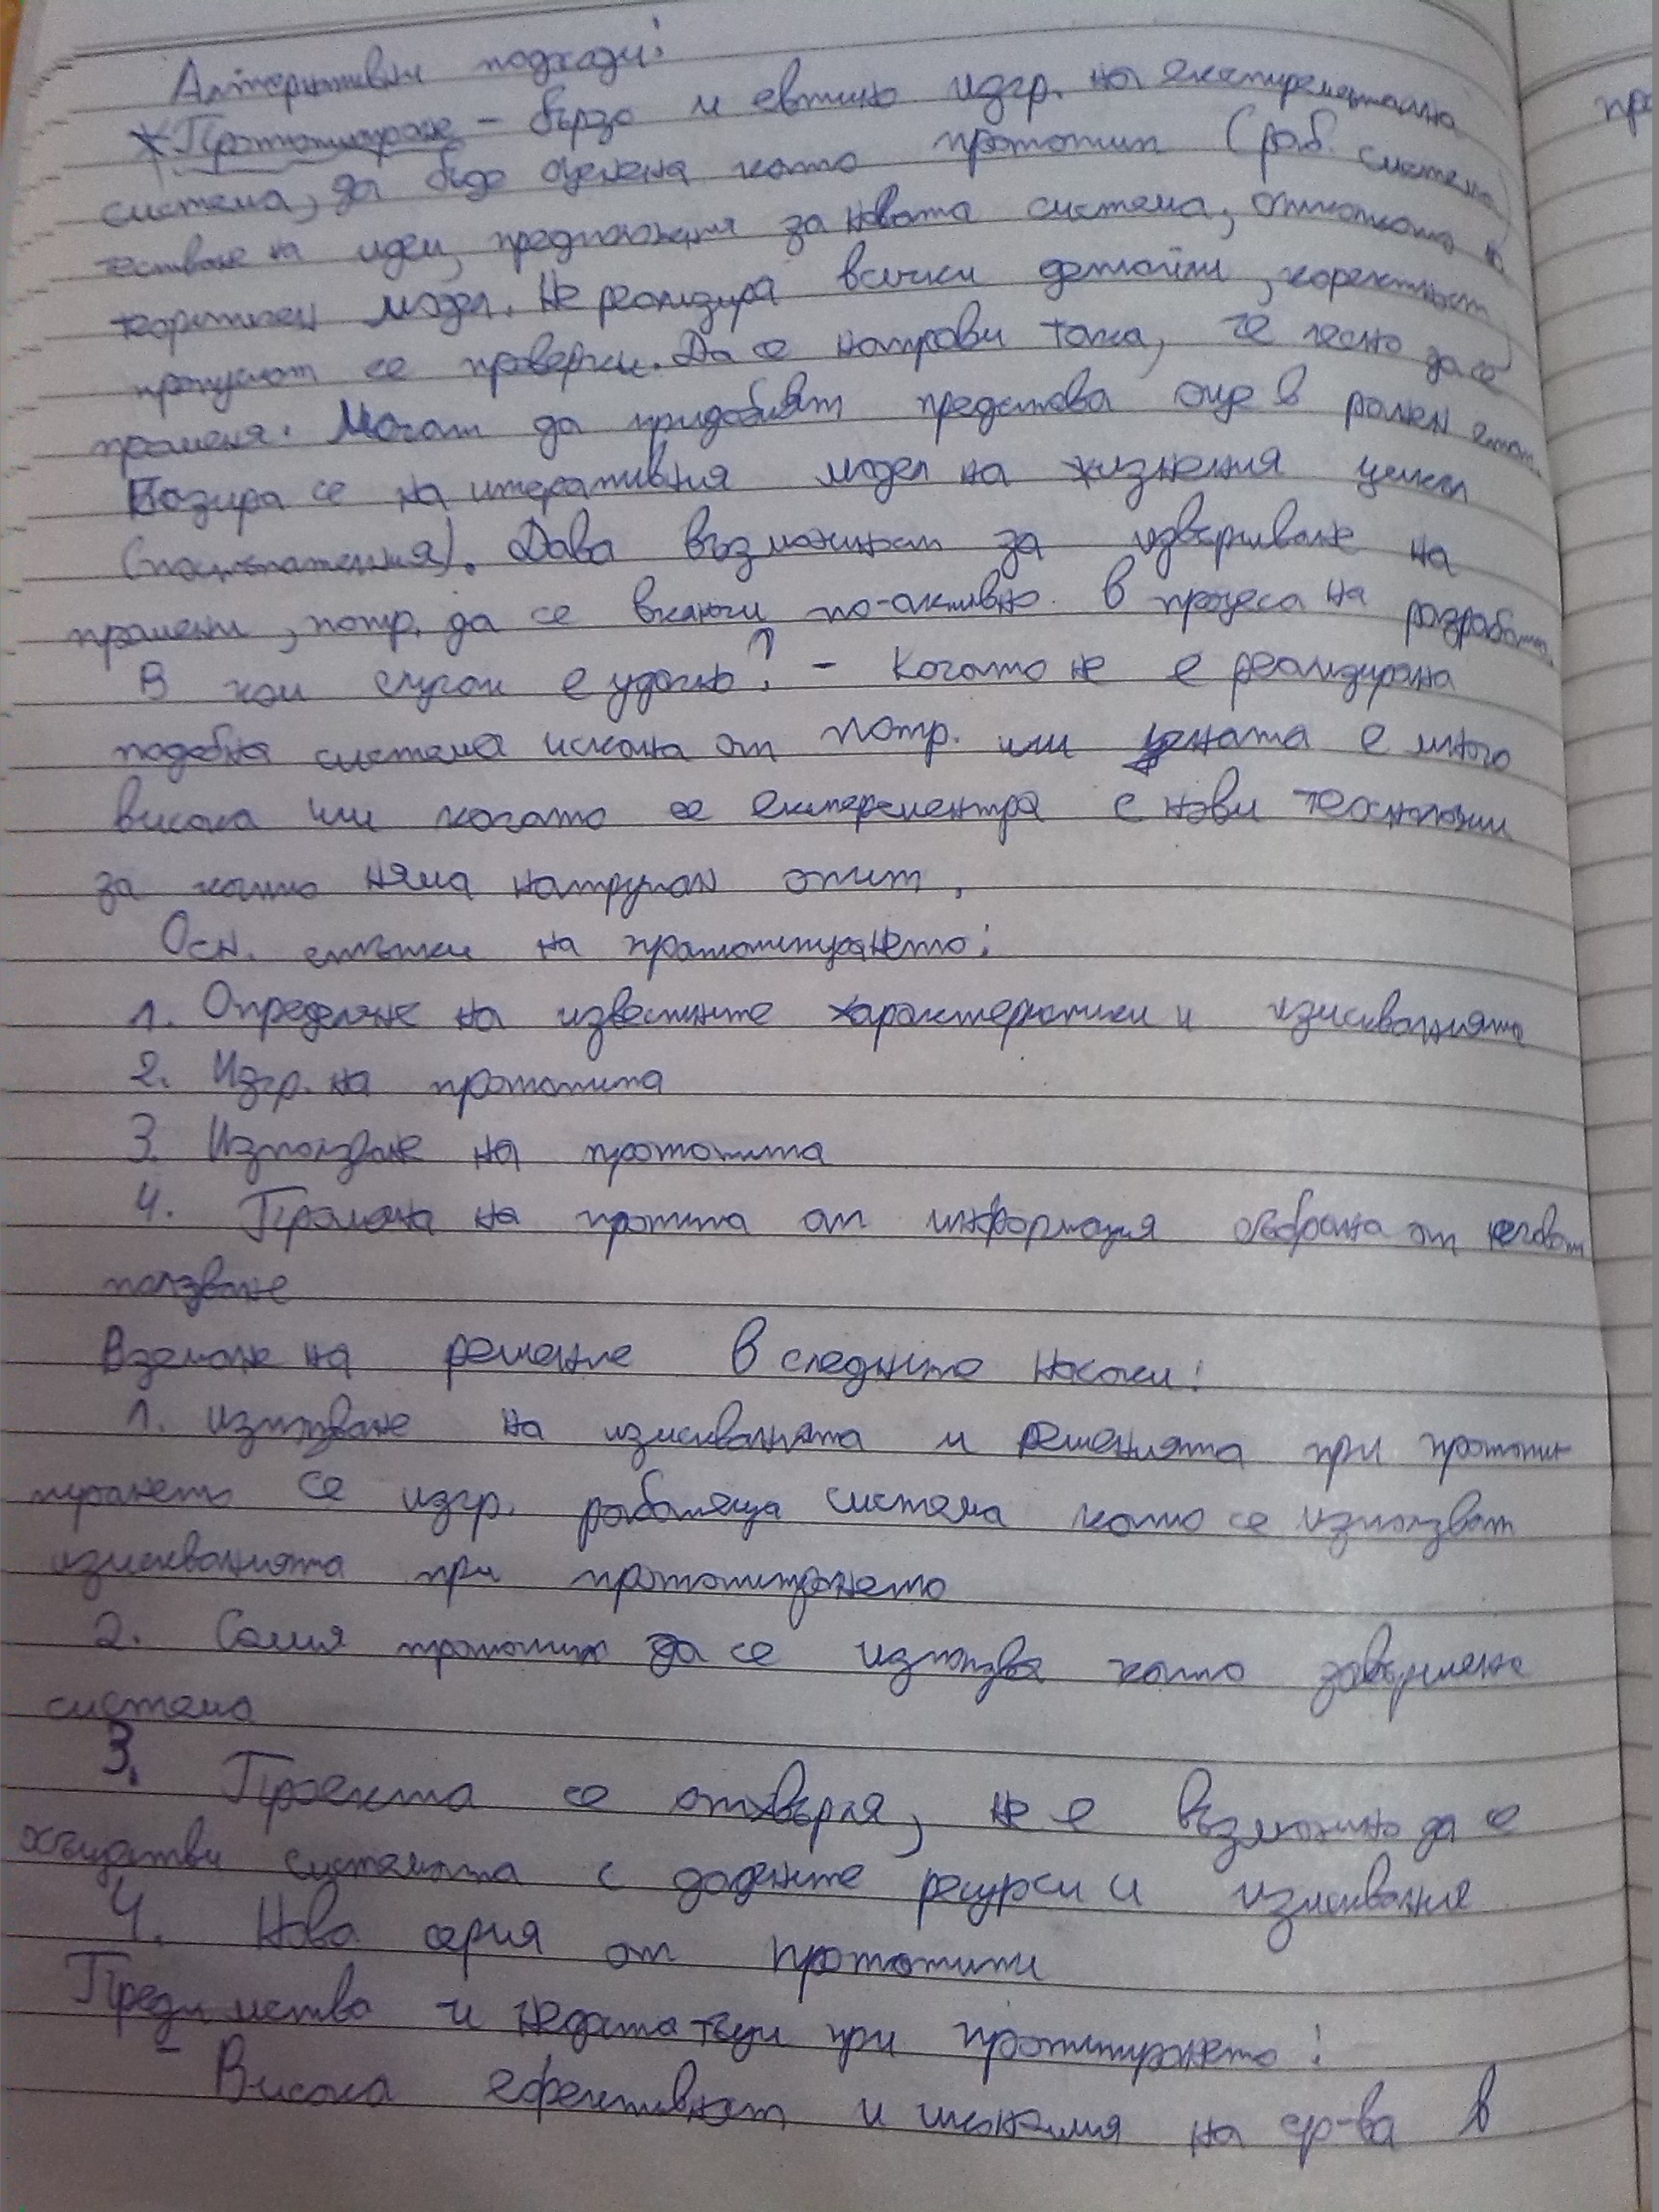 Алтернативни подходи:
* Прототипиране - бързо и евтино изгр. на експериментална
система, да бъде оценена като прототип (раб. система
тестване на идеи, предположения за новата система,
теоретичен модел. Не реализира всички детайли, коректност
пропускат се проверки. Да се направи така, че лесно да се
променя. Могат да придобият представа още в ранен етап.
Базира се на итеративния модел на жизнения цикъл
Дава възможност за извършване на
промени, потр. да се включи по-активно в процеса на разработка
В кои случаи е удачно? - Когато не е реализирана
подобна система искана от потр. или цената е много
висока или когато се експерементра с нови технологии
за които няма натрупан опит.
Осн. стъпки на прототипирането:
1. Определяне на известните характеристики и изискванията
2. Изгр. на прототипа
3. Използване на прототипа
4. Промяна на протипа от информация събрана от неговот
ползване
Вземане на решение в следните насоки:
1. използване на изискванията и решенията при прототи-
пирането се изгр. работеща система като се използват
изискванията при прототипирането
2. Самия прототип да се използва като завършена
система
3. Проекта се отхвърля, не е възможно да се
осъществи системата с дадените ресурси и изисквания
4. Нова серия от прототипи
Предимства и недостатъци при протипирането:
- Висока ефективност и икономия на ср-ва в
пре